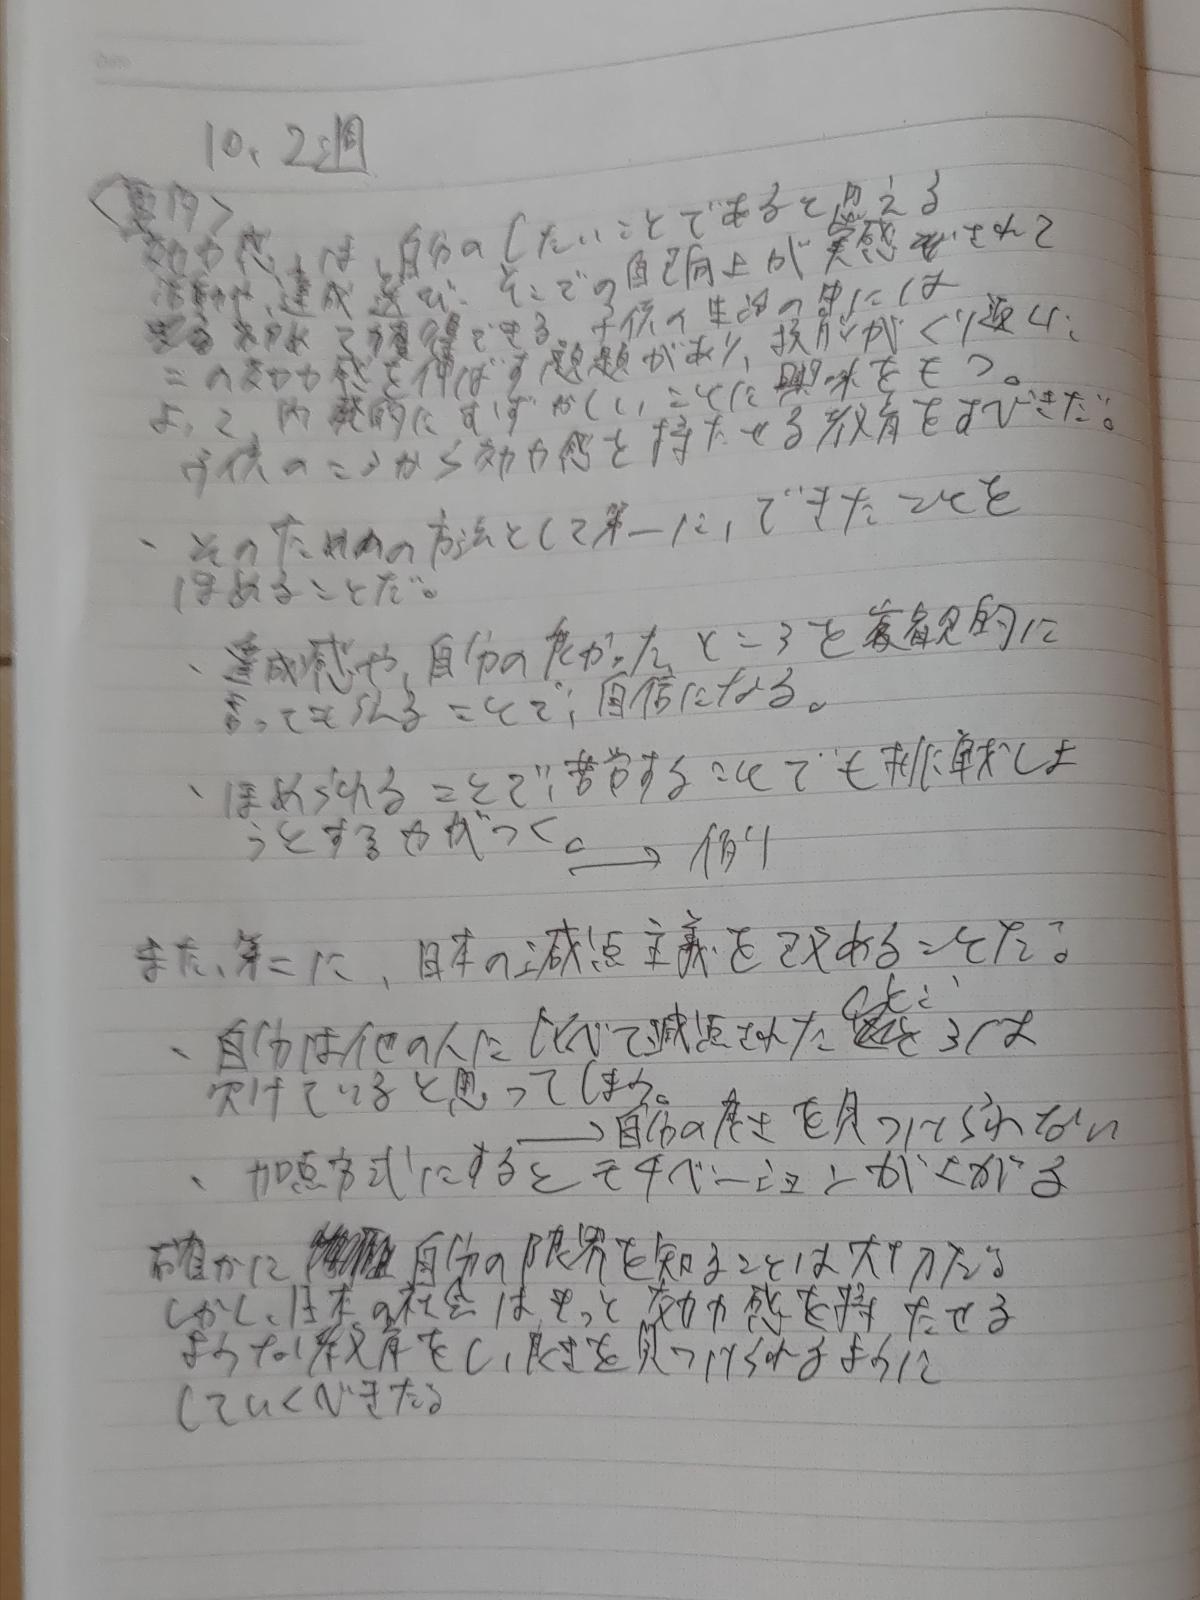 10、2週
<要約>
効力感は、自分のしたいことであると思える
活動や達成 そこでの自己向上が実感されて
獲得できる 子供の生活の中には
この効力感を伸ばす題題があり、挑戦がくり返し、
よって、内発的にむずかしいことに興味をもつ。
子供のころから効力感を持たせる教育をすべきだ。
・そのための方法として第一に、できたことを
ほめることだ。
・達成感や、自分の良かったところを客観的に
言ってもらえることで、自信になる。
・ほめられることで、苦労することでも挑戦しよ
うとする力がつく。
→
また、第二に、日本の減点主義を改めることだ。
・自分は他の人にくらべて減点されたところは
欠けていると思ってしまう。
→自分の良さを見つけられない
・加点方式にするとモチベーションが上がる
確かに 自分の限界を知ることは大切だ。
しかし、日本の社会はもっと効力感を持たせる
ような教育をし、良さを見つけられるように
していくべきだ。